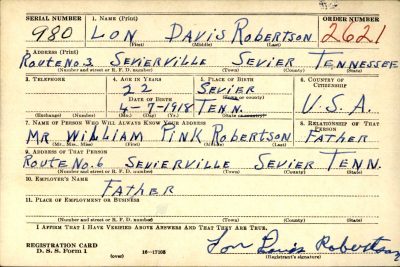 SERIAL NUMBER 1. NAME (Print) ORDER NUMBER
980 LON DAVIS ROBERTSON 2621
(First) (Middle) (Last)
2. ADDRESS (Print)
ROUTE NO. 3 SEVIERVILLE SEVIER TENNESSEE
(Number and street or R. F. D. number) (Town) (County) (State)
3. TELEPHONE 4. AGE IN YEARS 5. PLACE OF BIRTH 6. COUNTRY OF CITIZENSHIP
22 SEVIER
DATE OF BIRTH (Town or county)
4-7-1918 TENN. U.S.A.
(Mo.) (Day) (Yr.) (State or country)
7. NAME OF PERSON WHO WILL ALWAYS KNOW YOUR ADDRESS 8. RELATIONSHIP OF THAT PERSON
MR. WILLIAM PINK ROBERTSON FATHER
(Mr., Mrs., Miss) (First) (Middle) (Last)
9. ADDRESS OF THAT PERSON
ROUTE NO. 6 SEVIERVILLE SEVIER TENN.
(Number and street or R. F. D. number) (Town) (County) (State)
10. EMPLOYER'S NAME
FATHER
11. PLACE OF EMPLOYMENT OR BUSINESS
(Number and street or R. F. D. number) (Town) (County) (State)
I AFFIRM THAT I HAVE VERIFIED ABOVE ANSWERS AND THAT THEY ARE TRUE.
REGISTRATION CARD
D. S. S. Form 1 (over) 16—17105 Lon Davis Robertson
(Registrant's signature)